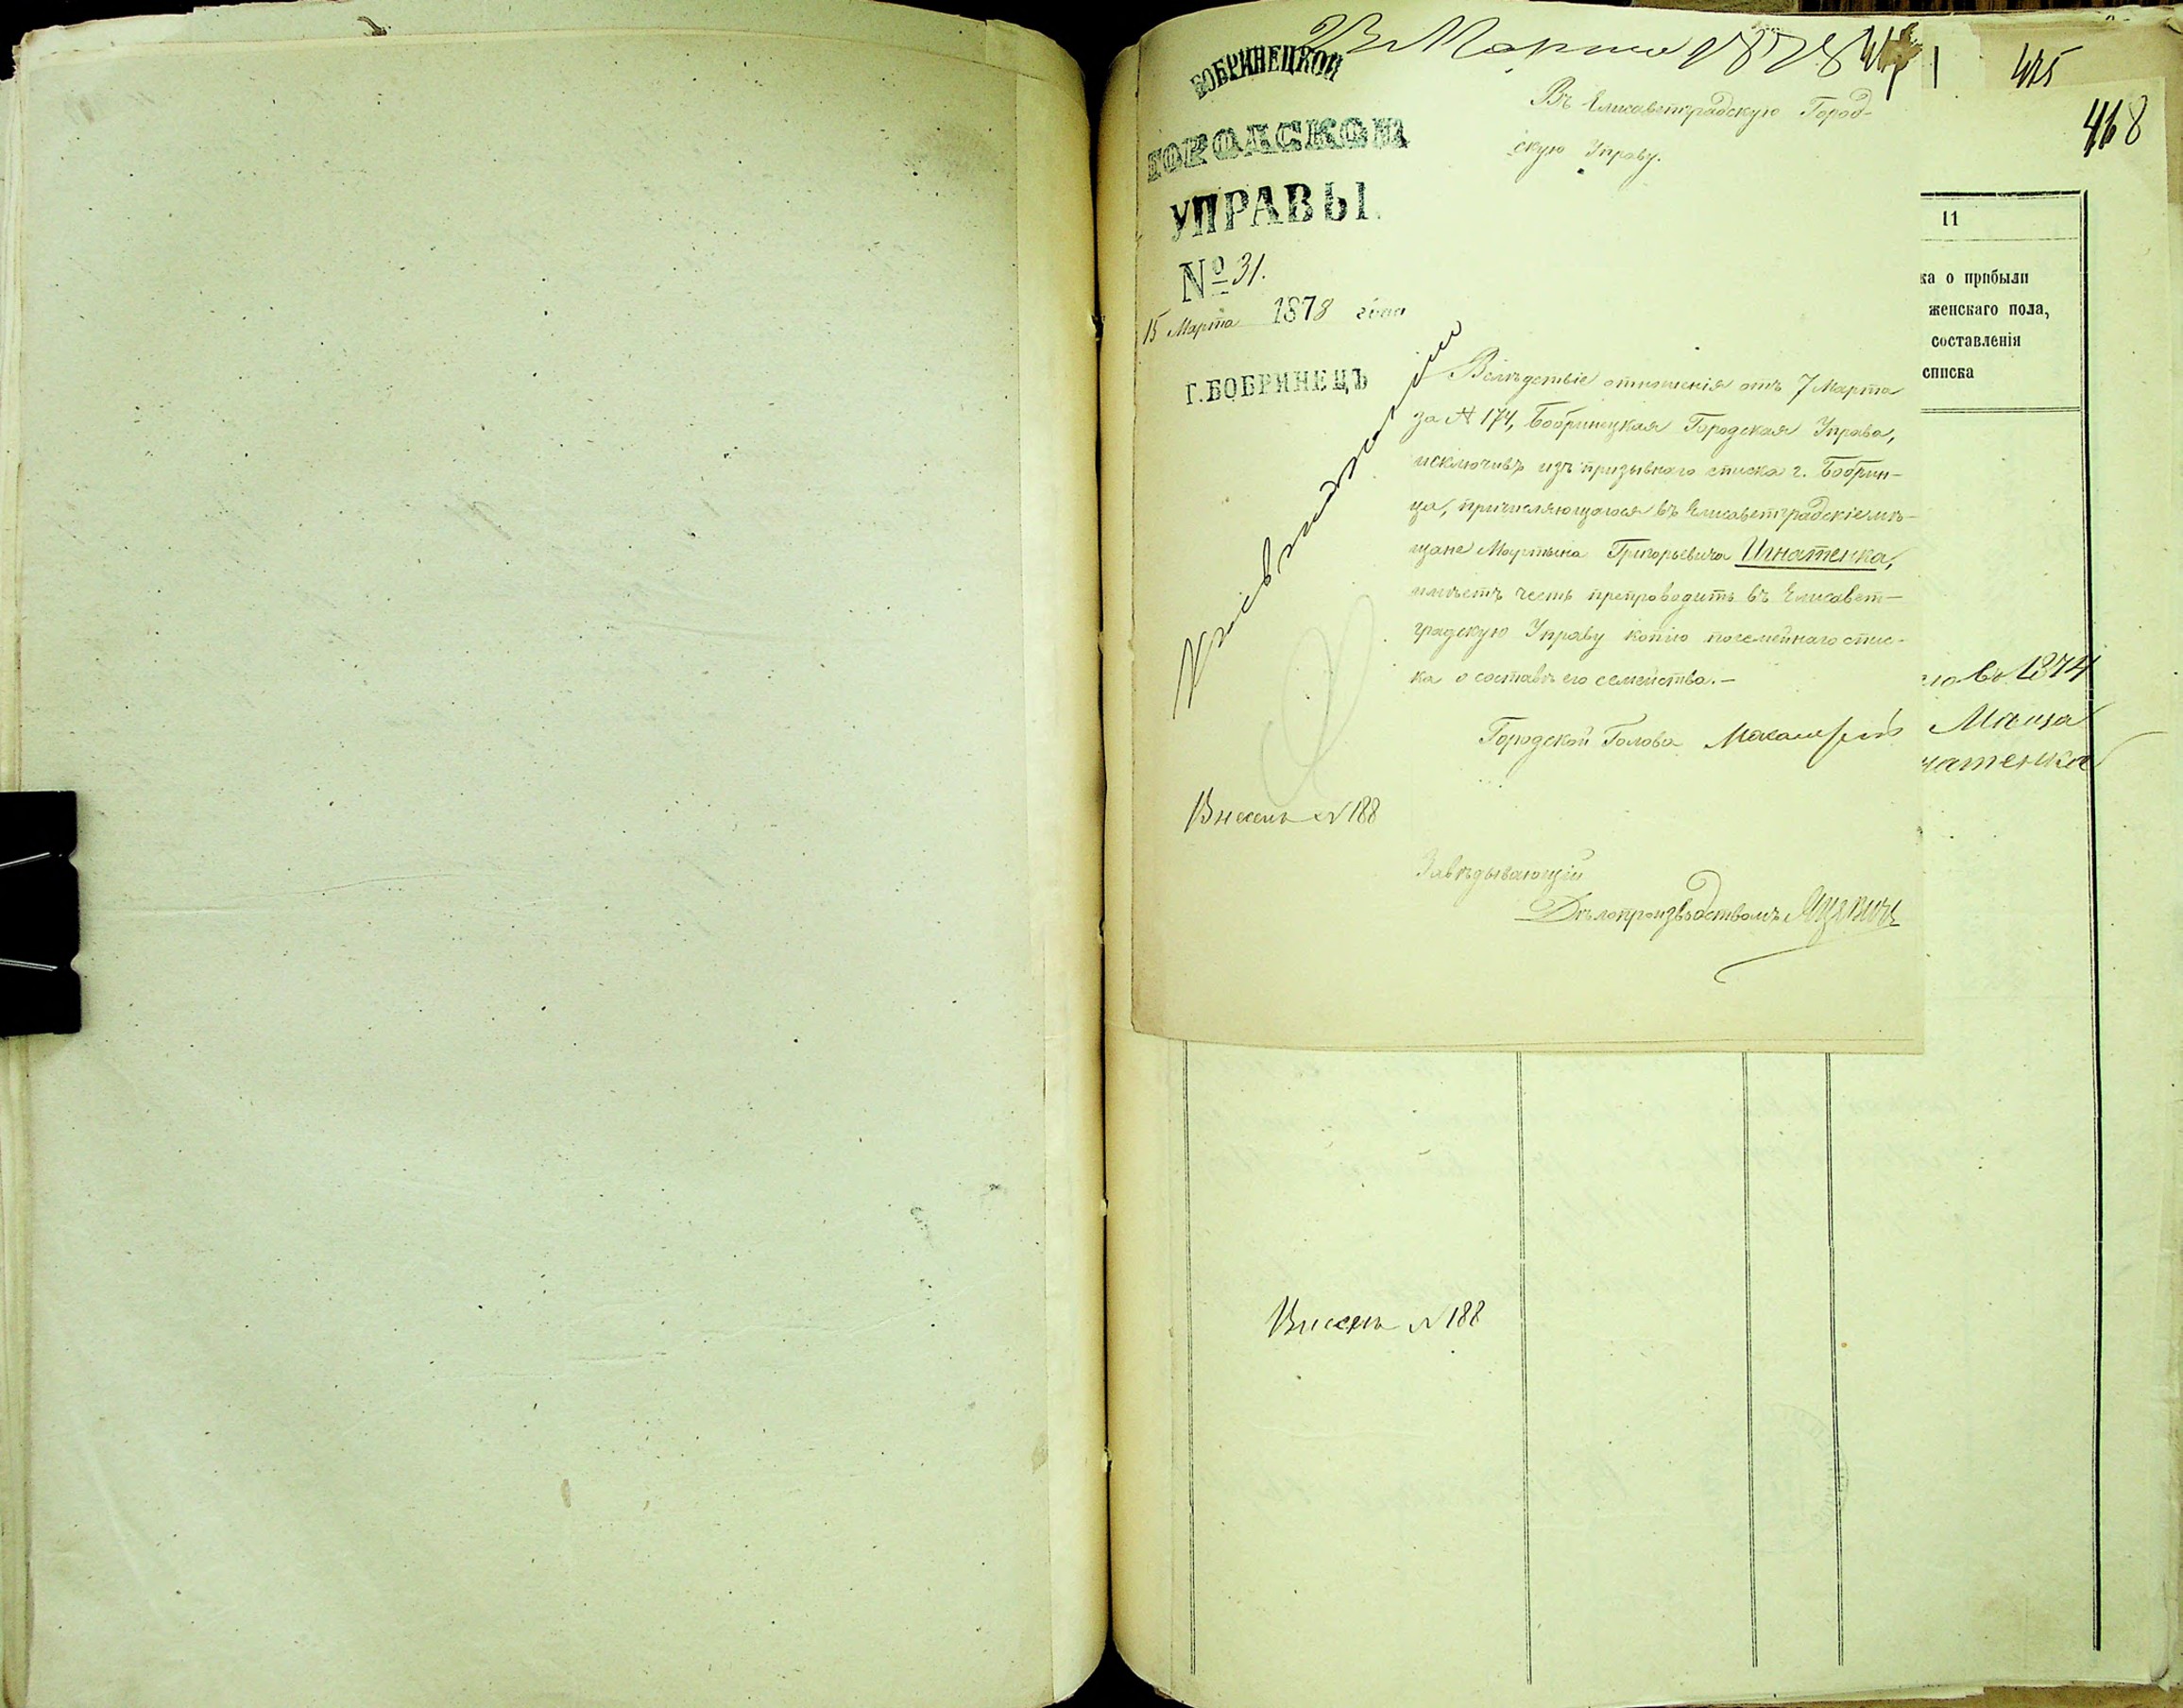 23 Марта 1878
475
468
БОБРИНЕЦКОЙ
ГОРОДСКОЙ
УПРАВЫ.
№ 31.
15 Марта 1878 года
Г. БОБРИНЕЦЪ
Въ Елисаветградскую Город-
скую Управу.
Вслѣдствіе отношенія отъ 7 Марта
за № 174, Бобринецкая Городская Управа,
исключивъ изъ призывнаго списка г. Бобрин-
ца, причисляющагося въ Елисаветградскіе мѣ-
щане Мартына Григорьевича Игнатенка,
имѣетъ честь препроводить въ Елисавет-
градскую Управу копію посемейнаго спис-
ка о составѣ его семейства.–
Городской Голова
Внесенъ № 188
Завѣдывающій
Дѣлопроизводствомъ
11
ка о прибыли
женскаго пола,
составленія
списка
въ 1874
натенка
Внесенъ № 188